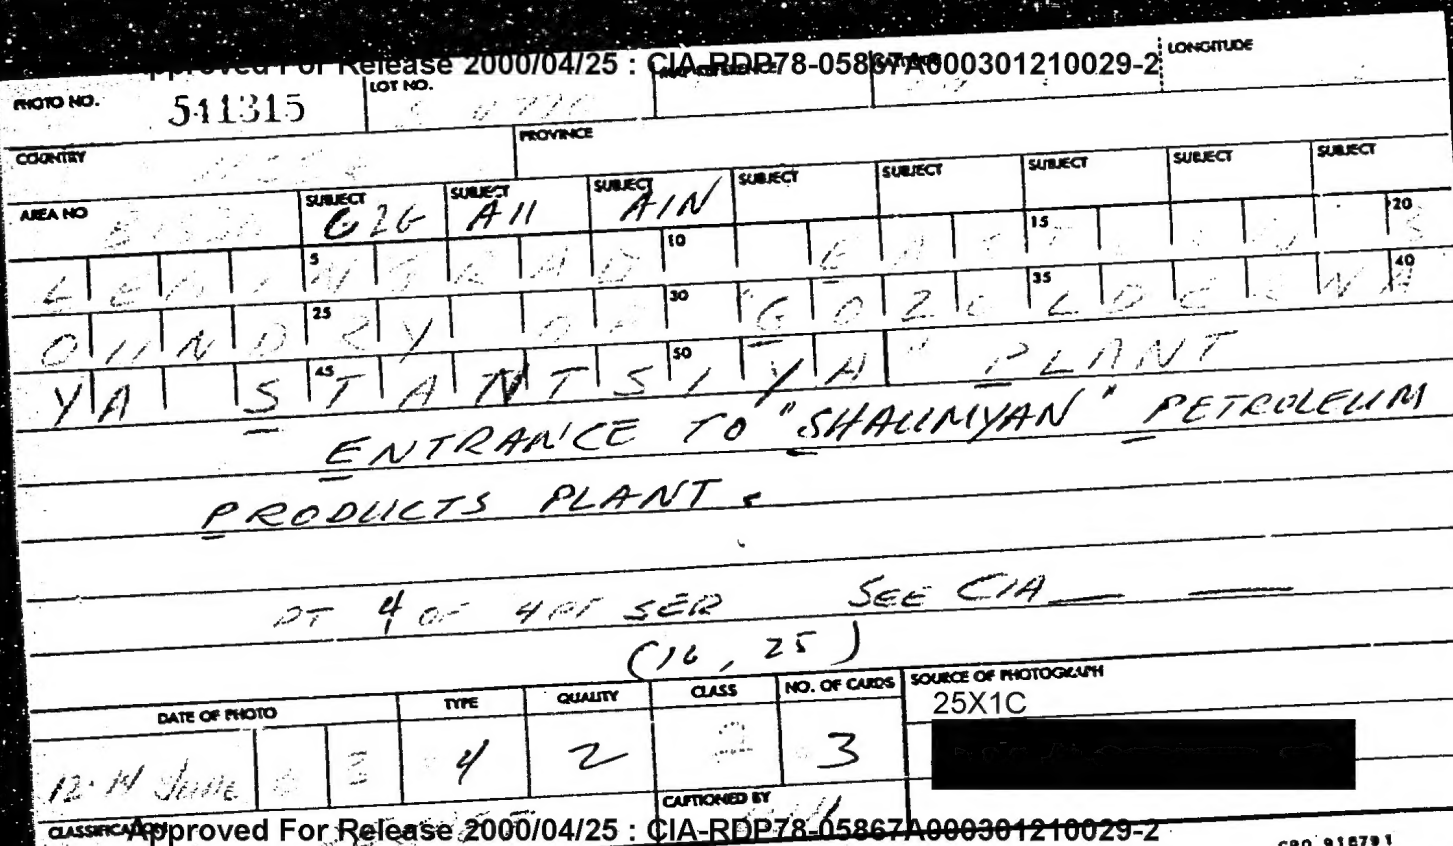 Approved For Release 2000/04/25 : CIA-RDP78-05867A000301210029-2
LONGITUDE
PHOTO NO. 541315 LOT NO.
COUNTRY PROVINCE
AREA NO SUBJECT G2G SUBJECT A11 SUBJECT AIN SUBJECT SUBJECT SUBJECT SUBJECT SUBJECT
5 10 15 20
LENINGRAD
25 30 35 40
OUNDRY OF "GOZOLDERNA
45 50
YA STANTSIYA" PLANT
ENTRANCE TO "SHAUMYAN" PETROLEUM
PRODUCTS PLANT.
PT 4 OF 4 PT SER SEE CIA
(16, 25)
DATE OF PHOTO TYPE QUALITY CLASS NO. OF CARDS SOURCE OF PHOTOGRAPH
25X1C
12-14 JUNE 6 3 4 2 2 3
CAPTIONED BY
CLASSIFICATION
Approved For Release 2000/04/25 : CIA-RDP78-05867A000301210029-2
GPO 918791